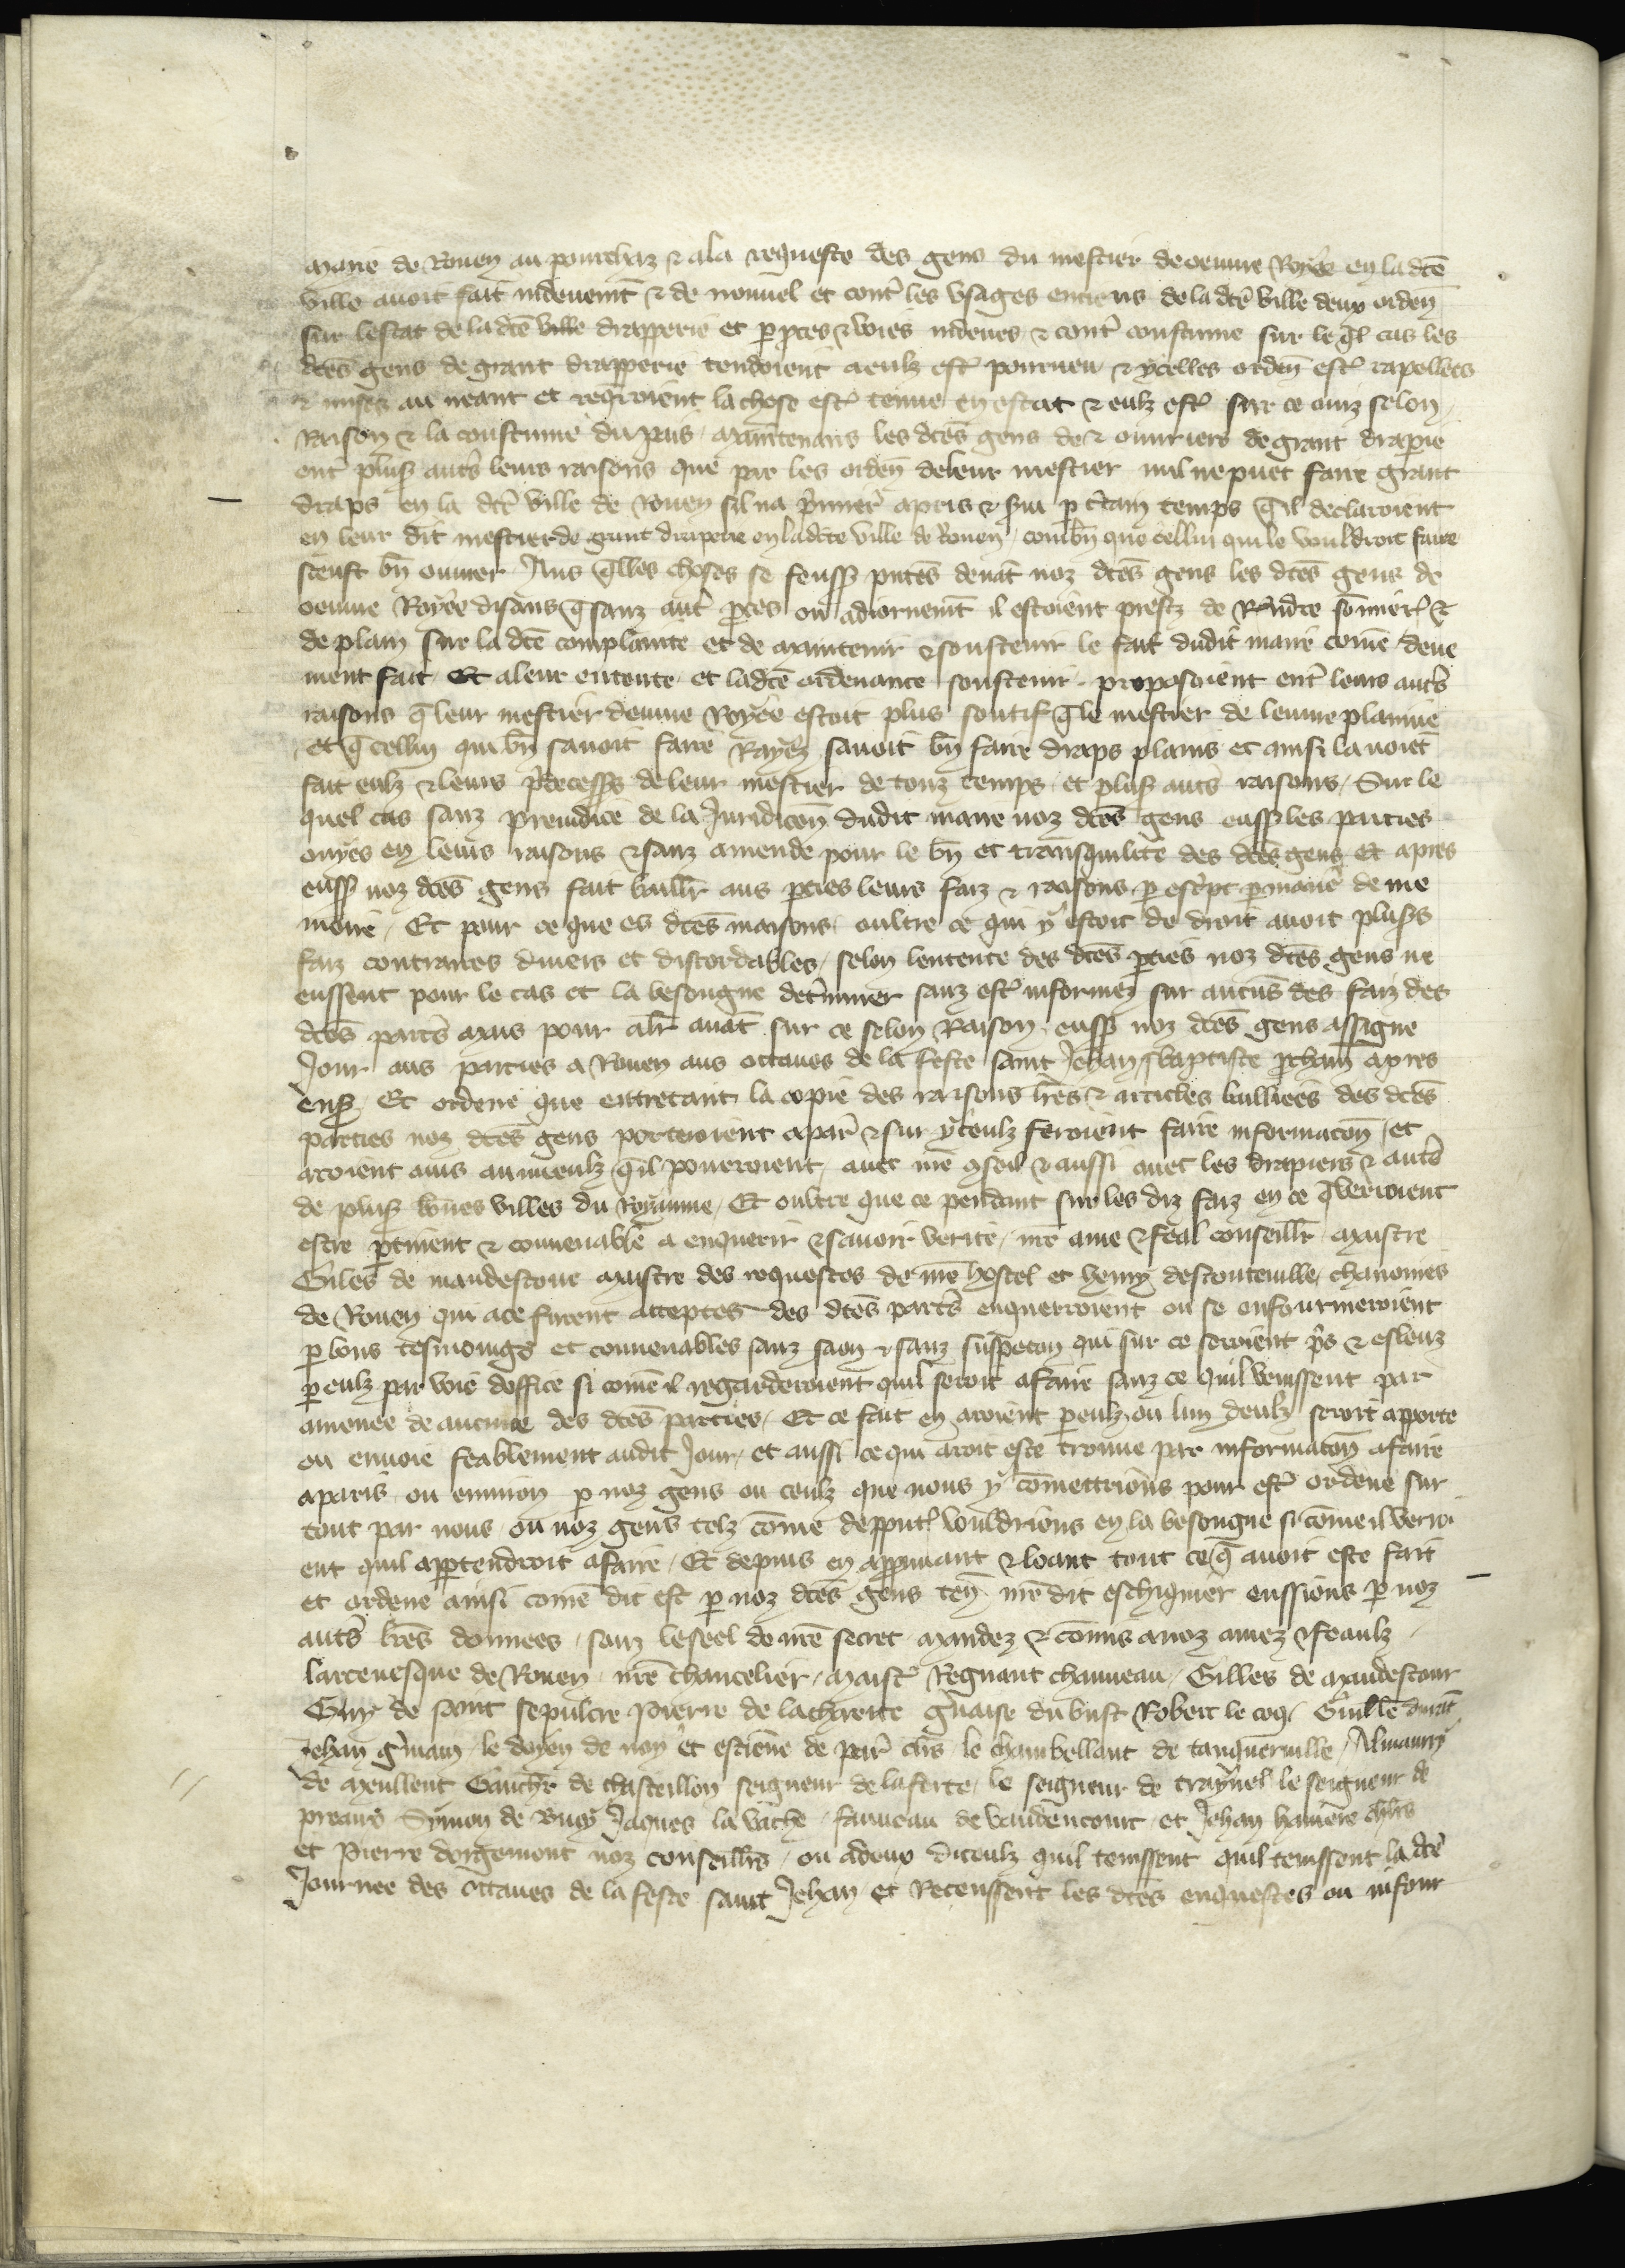 maire de Rouen au pourchaz & a la requeste des gens du mestier de oeuvre Royée en la dcẽ
ville avoit fait indeuemt̃ & de nouuel et contr̃ les vsages enciens de la dcẽ ville deux orden̄
sur lestat de la dcẽ ville drapperie et ꝑ ꝑces & voies indeues & contr̃ coustume sur le q̄l cas les
dcẽs gens de grant drapperie tendoient a eulz estr̃ pourueu & ycelles orden̄ estr̃ rapellees
& mises au neant et req̄roient la chose estr̃ tenue en estat & eulz estr̃ sur ce oiz selon
Raison & la coustume du pais maintenans les dcẽs gens de & ouuriers de grant draperie
entr̃ plusꝭ autr̃s leurs raisons que par les orden̄ de leur mestier nul ne puet faire grant
draps en la dcẽ ville de Rouen sil na p̃mier̃ apris & sui ꝑ c̃tain temps q̄il declaroient
en leur dit mestier de grant draperie en la dicte ville de Rouen combn̄ que cellui qui le vouldroit faire
sceust bn̄ ouurer Aus q̄lles choses se feussꝭ pñtes deuãt noz dcẽs gens les dcẽs gens de
oeuure Royée disans q̄ sanz autr̃ ꝑces ou adiornemt̃ il estoient prestz de Rñdre sõmier̃ &
de plain sur la dcẽ complainte et de maintenir & soustenir le fait dudit maire cõme deue
ment fait Et a leur entente et ladcẽ ordenance soustenir proposoient entr̃ leurs autr̃s
raisons q̄ leur mestier deuure Royée estoit plus soutif q̄ le mestier de leuure plaine
et q̄ cellui qui bn̄ sauoit faire Rayez sauoit bn̄ faire draps plains et ainsi lauoiẽt
fait eulz & leurs p̃decessꝭs de leur mestier de touz temps et plusꝭ autr̃s raisons Sur le
quel cas sanz preiudice de la Juridicõn dudit maire noz dcẽs gens eussꝭ les parties
ouyes en leurs raisons & sanz amende pour le bn̄ et transquilite des dcẽs gens Et apres
eussꝭ noz dcẽs gens fait baillr̃ aus ꝑties leurs faiz & raisons ꝑ escr̃pt ꝑ maniẽr de me
moire Et pour ce que es dcẽs raisons oultre ce qui y estoit de droit auoit plusꝭs
faiz contraires diuers et discordables selon lentente des dcẽs ꝑties noz dcẽs gens ne
eussent pour le cas et la besongne det̃miner sanz estr̃ informez sur aucũs des faiz des
dcẽs partr̃s mais pour alr̃ auãt sur ce selon Raison eussꝭ noz dcẽs gens assigne
Jour aus parties a Rouen aus octaues de la feste saint Jehan baptiste ꝓchain apres
ensꝭ Et ordene que entretant la copie des raisons lr̃es & articles bailliees des dcẽs
parties noz dcẽs gens porteroient a par̃ & sur yceulz feroient faire informacõn et
aroient auis au mieulz q̄il pourroient auec nr̃e ꝯseil & aussi auec les drapiers & autr̃s
de plusꝭ bõnes villes du Royaume Et oultre que ce pendant sur les diz faiz en ce q̄ verroient
estre ꝑtinent & conuenable a enquerir & sauoir verite nr̃e ame & feal conseillr̃ Maistre
Giles de maudestour Maistre des requestes de nr̃e hostel et henry descouteuille chanoines
de Rouen qui a ce furent acceptes des dcẽs partr̃s enquerroient ou se enfourmeroient
ꝑ bons tesmoings et conuenables sanz saon & sanz suspecon qui sur ce seroient p̃s & esleuz
ꝑ eulz par voie doffice si cõme il regarderoient quil seroit a faire sanz ce quil venissent par
amenee de aucune des dcẽs parties Et ce fait en aroient ꝑ eulz ou lun deulz seroit aporte
ou enuoie feablement audit Jour et aussi ce qui aroit este trouue par informacõn a faire
a paris ou enuiron ꝑ noz gens ou ceulz que nous y cõmettrions pour estr̃ ordene sur
tout par nous ou noz gens telz cõme depputr̃ vouldrions en la besongne si cõme il verro
ent quil appartendroit a faire Et depuis en appꝛuuant & loant tout ce q̄ auoit este fait
et ordene ainsi cõme dit est ꝑ noz dcẽs gens ten̄ nr̃e dit eschiquier eussions ꝑ noz
autr̃s lr̃es donnees sanz le seel de nr̃e secret mandez & cõmis a noz amez & feaulz
larceuesque de Rouen nr̃e chancelier Maistr̃ Regnaut chauueau Gilles de Maudestour
Guy de saint sepulcre Pierre de la charite gr̃uaise du bust Robert le coq Guillẽ durãt
Jehan gr̃main le doyen de noy et estiene de par̃ clr̃s le chambellant de tanqueruille Almaurry
de Meullent Gauchr̃ de chasteillon seigneur de la ferte le seigneur de traynel le seigneur de
preaus Symon de Bucy Jaques la vache fauueau de vaudencourt et Jehan haniere chlr̃s
et Pierre dorgemont noz conseillr̃s ou a deux diceulz quil tenissent quil tenissent la dcẽ
Journee des octaues de la feste saint Jehan et Receussent les dcẽs enquestes ou infour